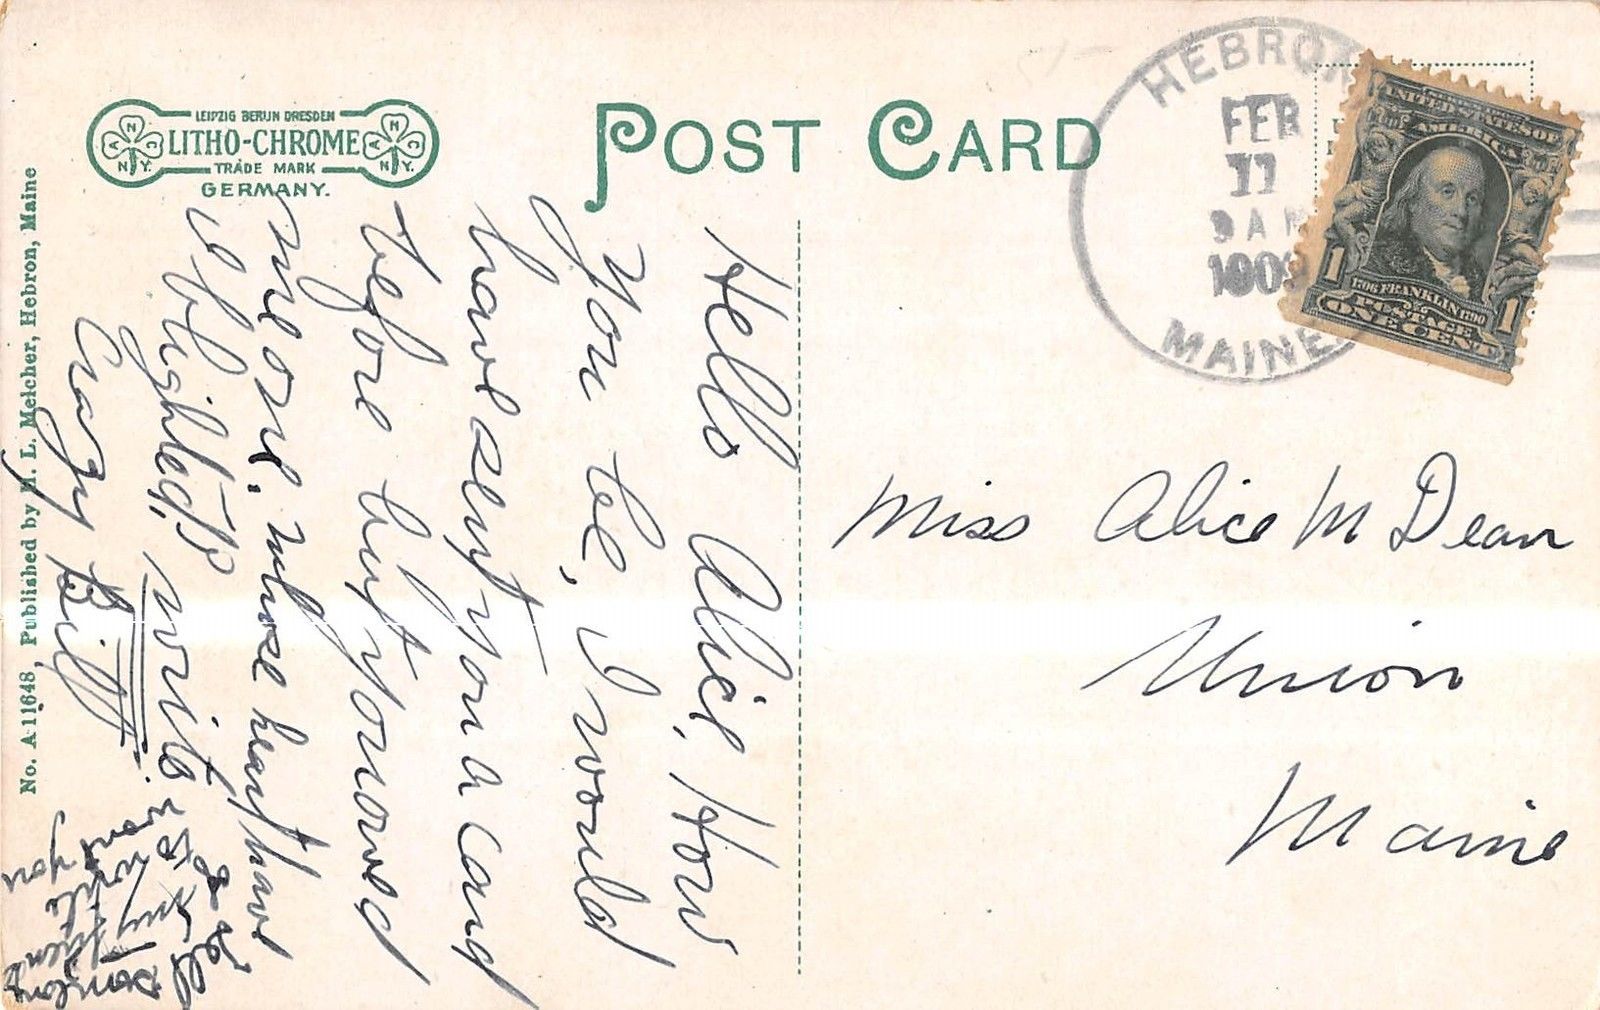 LEIPZIG BERLIN DRESDEN
LITHO-CHROME
TRADE MARK
GERMANY.
A N C
N.Y.
A N C
N.Y.
POST CARD
HEBRON
FEB
11
9 AM
1909
MAINE
UNITED STATES OF
AMERICA
1 1
1706 FRANKLIN 1790
POSTAGE
ONE CENT
No. A 11648 Published by H. L. Melcher, Hebron, Maine
Hello Alice, How
you be, I would
have sent you a card
before but you owed
me one. whose heart have
u blighted,
Crazy Biff.
write
Tell
my
to write
want you
Miss Alice M Dean
Union
Maine